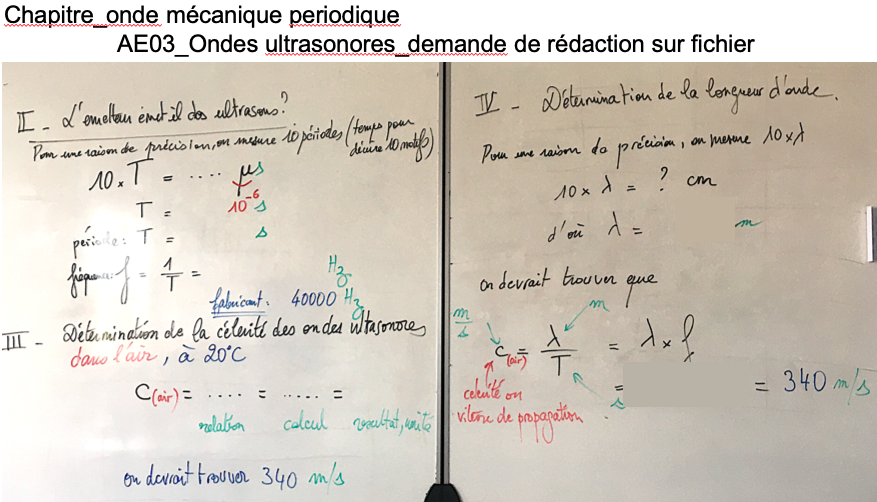 Chapitre_onde mécanique periodique
AE03_Ondes ultrasonores_demande de rédaction sur fichier
II - L'emetteur émet il des ultrasons?
Pour une raison de précision, on mesure 10 périodes (temps pour
décrire 10 motifs)
10 x T = .... µs
10^-6 s
T =
période: T = s
fréquence: f = 1/T = Hz
fabricant: 40000 Hz
III - Détermination de la célérité des ondes ultrasonores
dans l'air, à 20°C
C(air) = .... = ..... =
relation calcul resultat, unité
on devrait trouver 340 m/s
IV - Détermination de la longueur d'onde.
Pour une raison de précision, on mesure 10 x λ
10 x λ = ? cm
d'où λ = m
on devrait trouver que
m/s m
C(air) = λ/T = λ x f
s = = 340 m/s
celérité ou
vitesse de propagation